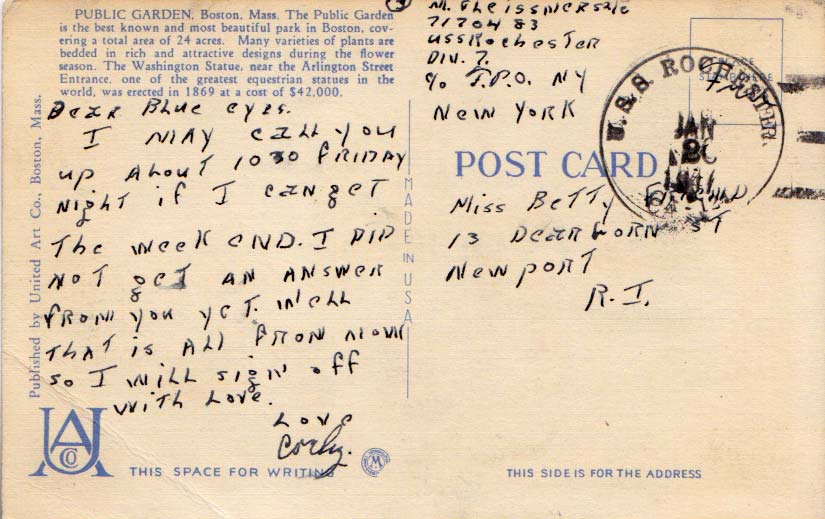 PUBLIC GARDEN, Boston, Mass. The Public Garden
is the best known and most beautiful park in Boston, cov-
ering a total area of 24 acres. Many varieties of plants are
bedded in rich and attractive designs during the flower
season. The Washington Statue, near the Arlington Street
Entrance, one of the greatest equestrian statues in the
world, was erected in 1869 at a cost of $42,000.
Dear Blue eyes.
I MAY CALL YOU
up About 1030 FRIDAY
Night if I can get
The week END. I DID
NOT get AN ANSWER
FROM you yet. Well
THAT is All FROM NOW
so I will sign off
with Love.
Love
Corky.
Published by United Art Co., Boston, Mass.
UAC
CO
THIS SPACE FOR WRITING
MADE IN USA
M. Theissmer S2/c
71704 83
USS Rochester
DIV. 7.
c/o F.P.O. NY
New York
PLACE
STAMP HERE
Free
U.S.S. ROCHESTER.
JAN
POST CARD
Miss Betty
13 Dearborn ST
Newport
R.I.
THIS SIDE IS FOR THE ADDRESS